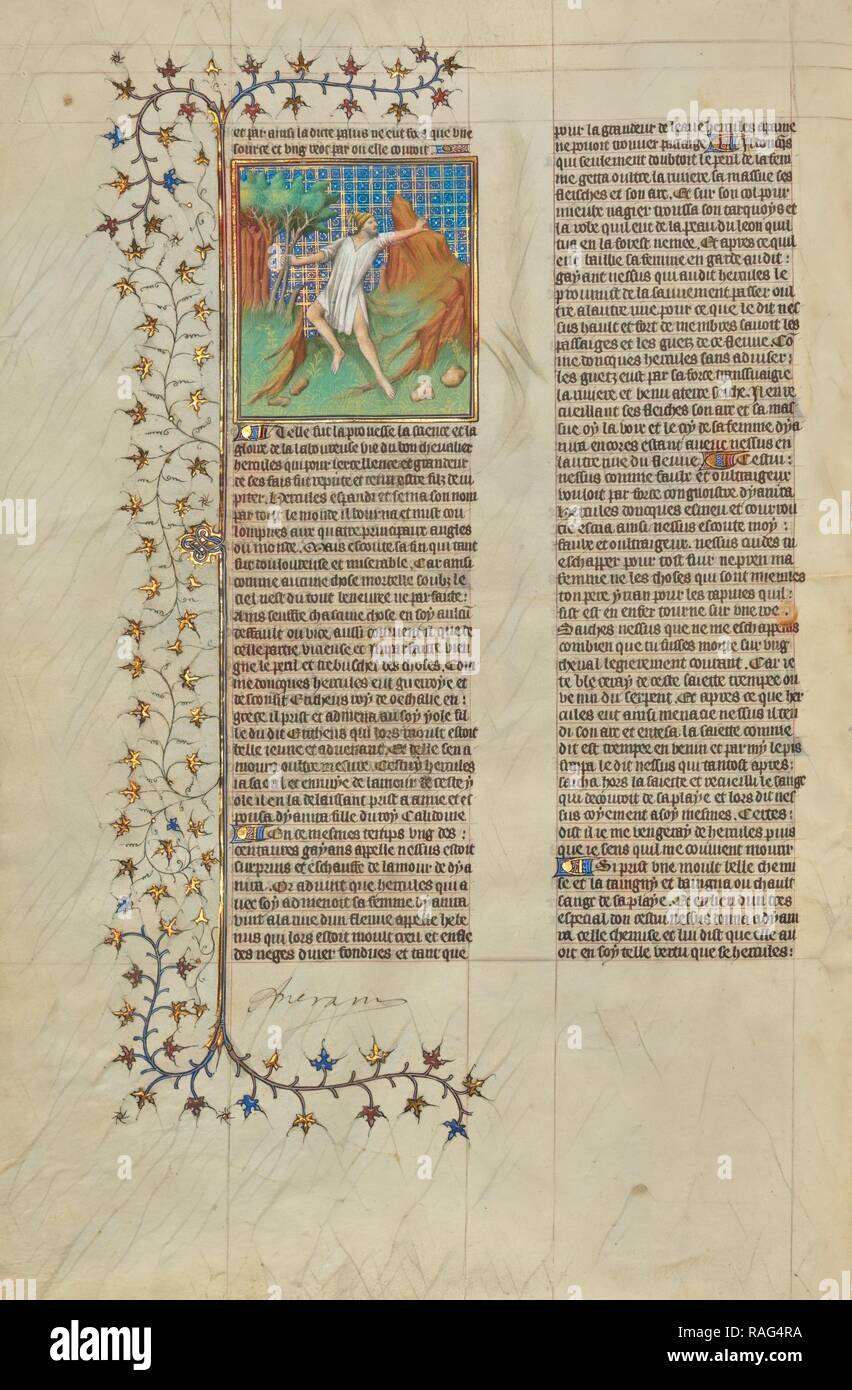 et par ainsi la dicte palus ne eut fors que une
source et ung ... par ou elle couroit
Telle fut la prouesse la science et la
gloire de la laboureuse vie du bon chevalier
hercules qui pour lexcellence et grandeur
de ses fais fut repute et tenu estre filz de iu
piter. Hercules espandi et sema son nom
par tout le monde il tourna et mist cou
lompnes aux quatre principaux angles
du monde. Mais escoute sa fin qui tant
fut douloureuse et miserable. Car ainsi
comme aucune chose mortelle soubz le
ciel nest du tout beneuree ne parfaicte:
Ains seuffre chascune chose en soy aucun
deffault ou vice aussi convient que de
celle partie vicieuse et imparfaicte vien
gne le peril et trebuschet des choses. Com
me doncques hercules eut guerroye et
desconfit Eritheus roy de oechalie en:
grece il prist et admena au soy yole fil
le du dit Eritheus qui lors moult estoit
belle ieune et advenant. Et delle sen a
moura oultre mesure. Cestuy hercules
ia saoul et ennuye de lamour de ceste y
ole il en la delaissant prist a amie et es
pousa dyanira fille du roy Calidoine
En ce mesmes temps ung des:
centaures gayans appelle nessus estoit
surpris et eschauffe de lamour de dya
nira. Or advint que hercules qui a
vec soy admenoit sa femme dyanira
vint a la rive dun fleuve appelle hebe
nus qui lors estoit moult creu et enfle
des neges diver fondues et tant que
pour la grandeur de leaue hercules a paine
ne povoit trouver passaige. doncqs
qui seulement doubtoit le peril de sa fem
me getta oultre la riviere sa massue ses
fleisches et son arc. Et sur son col pour
mieulx nagier troussa son tarquoys et
la robe quil eut de la peau du leon quil
tua en la forest nemee. Et apres ce quil
eut baillie sa femme en garde audit:
gayant nessus qui audit hercules le
promist de la sauvement passer oul
tre a lautre rive pour ce que le dit nes
sus hault et fort de membres savoit les
passaiges et les guetz de ce fleuve. Com
me doncques hercules sans adviser:
les guetz eust par sa force transnaigie
la riviere et venu a terre seiche. Il en re
cueillant ses fleiches son arc et sa mas
sue oy la voix et le cry de sa femme dya
nira encores estant avec nessus en
lautre rive du fleuve. Cestui:
nessus comme faulx et oultraigeux
vouloit par force congnoistre dyanira
Hercules doncques esmeu et courrou
cie escria ainsi nessus escoute moy:
faulx et oultraigeux. nessus cuides tu
eschapper pour tost fuir ne pren ma
femme ne les choses qui sont miennes
ton pere yxion pour les rapines quil:
fist est en enfer tourne sur une roe.
Saiches nessus que ne me eschapperas
combien que tu fusses monte sur ung
cheval legierement courant. Car ie
te bleceray de ceste saiette trempee ou
venin du serpent. Et apres ce que her
cules eut ainsi menacie nessus il ten
di son arc et entesa la saiette comme
dit est trempee en venin et parmy le pis
frappa le dit nessus qui tantost apres:
sacha hors la saiette et recueilli le sange
qui decouroit de sa playe et lors dit nes
sus coyement a soy mesmes. Certes:
dist il ie me vengeray de hercules puis
que ie sens quil me convient mourir
Si prist une moult belle chemi
se et la taingny et baingna ou chault
sange de sa playe. Et en lieu dun tres
especial don cestui nessus donna a dyani
ra celle chemise et lui dist que elle au
oit en soy telle vertu que se hercules:
alamy stock photo
Image ID: RAG4RA
www.alamy.com